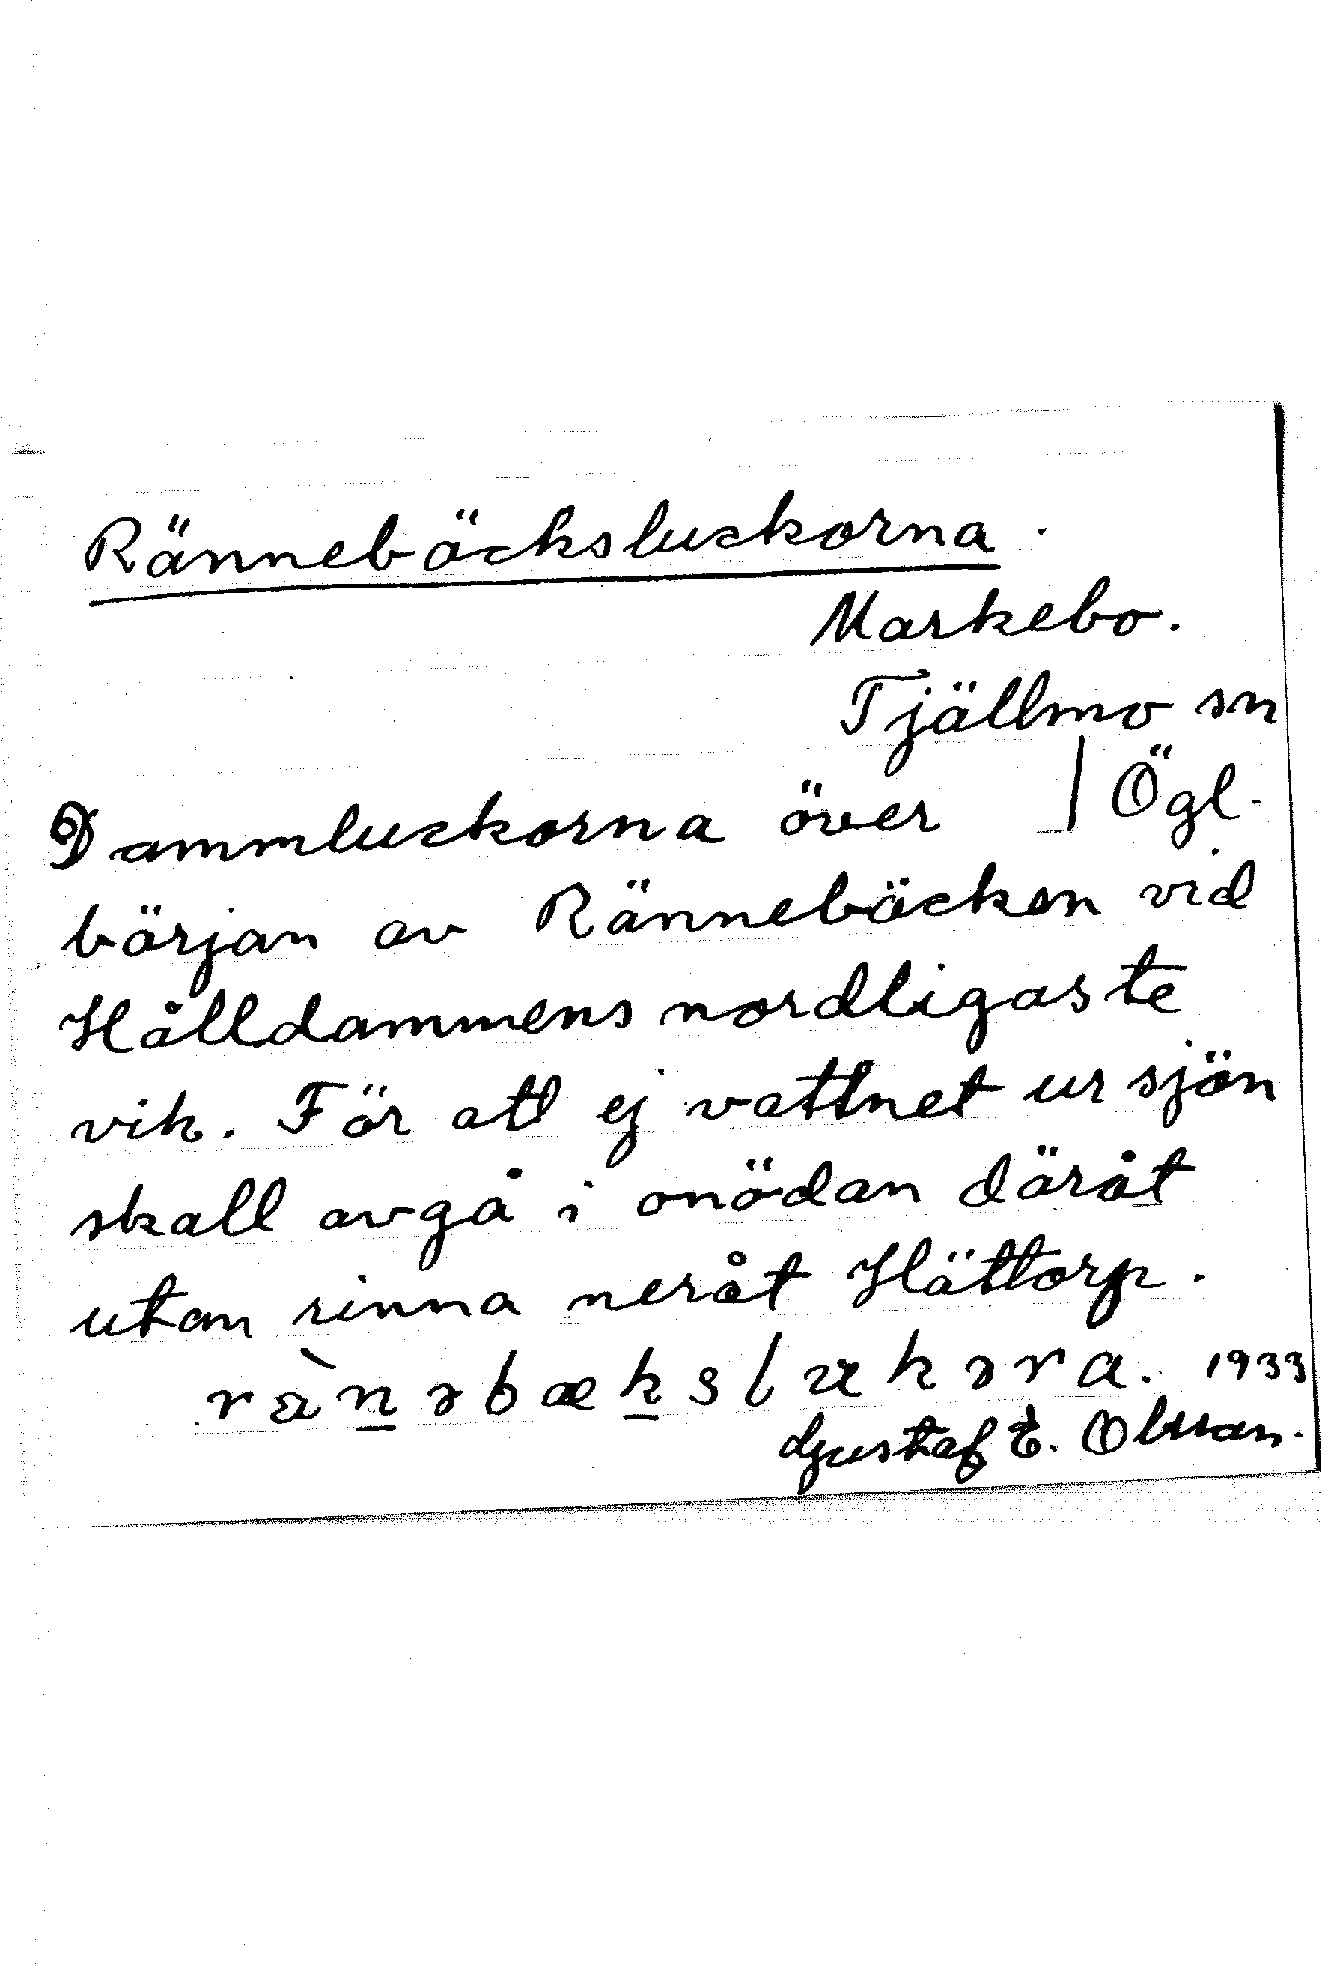 Rännebäcksluckorna.
Markebo.
Tjällmo sn
Ögl.
Dammluckorna över
början av Rännebäcken vid
Hålldammens nordligaste
vik. För att ej vattnet ur sjön
skall avgå i onödan däråt
utan rinna neråt Hättorp.
1933
Gustaf E. Olsson.